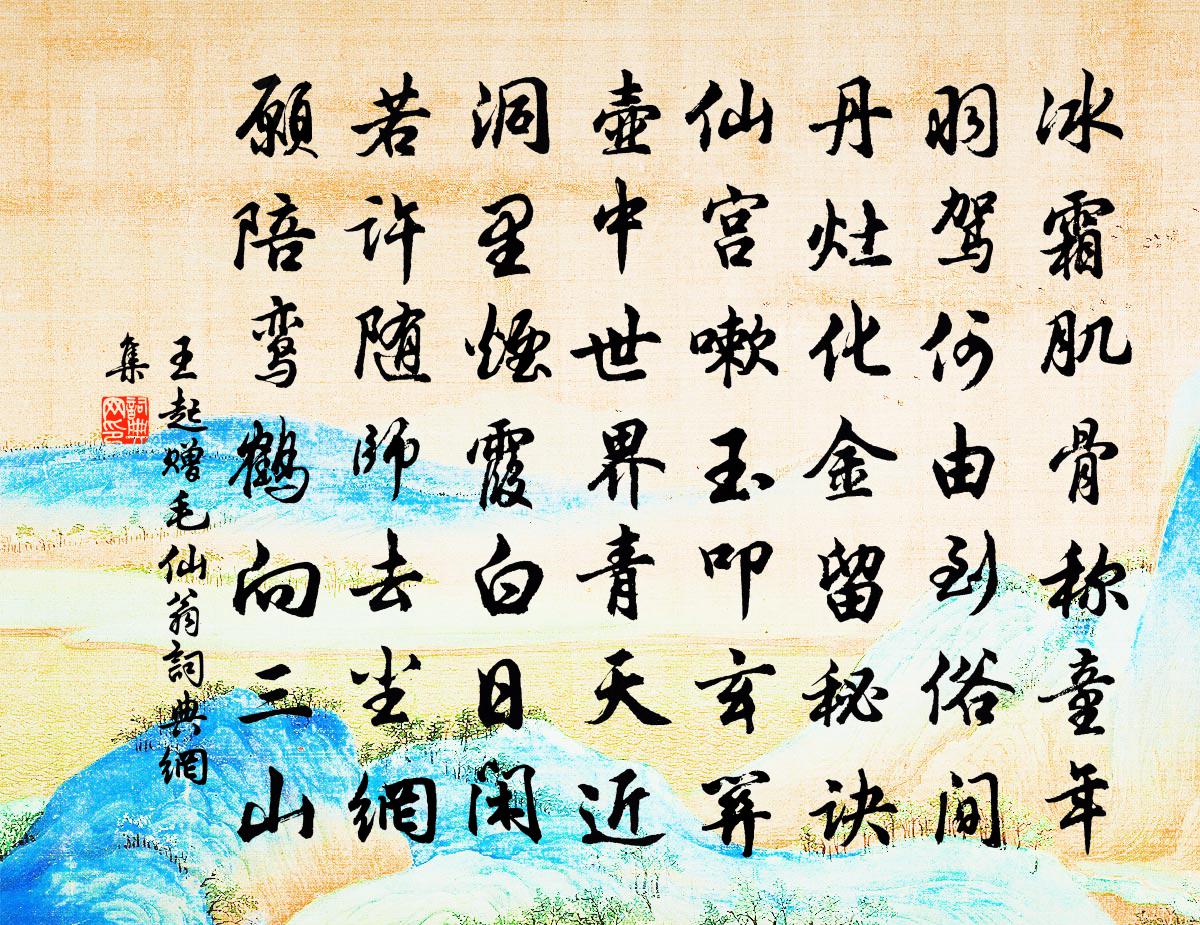 冰霜肌骨称童年
羽驾何由到俗间
丹灶化金留秘诀
仙宫嗽玉叩玄关
壶中世界青天近
洞里煙霞白日闲
若许随师去尘網
願陪鸾鹤向三山
王起赠毛仙翁詞典網
集
詞典网印